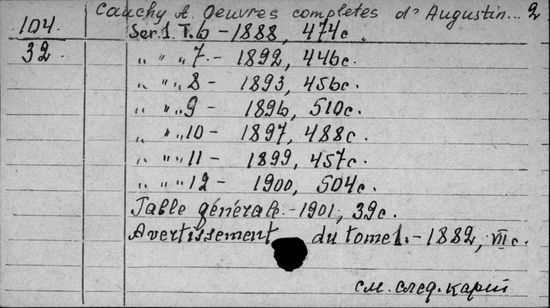 Cauchy A. Oeuvres completes d'Augustin... 2
104. Ser.1 T.6 - 1888, 474c.
32. " " " 7. - 1892, 446c.
" " " 8 - 1893, 456c.
" " " 9 - 1896, 510c.
" " " 10 - 1897, 488c.
" " " 11 - 1899, 457c.
" " " 12 - 1900, 504c.
Table générale. - 1901, 39c.
Avertissement du tome 1. - 1882, VIIc.
см. след. карт